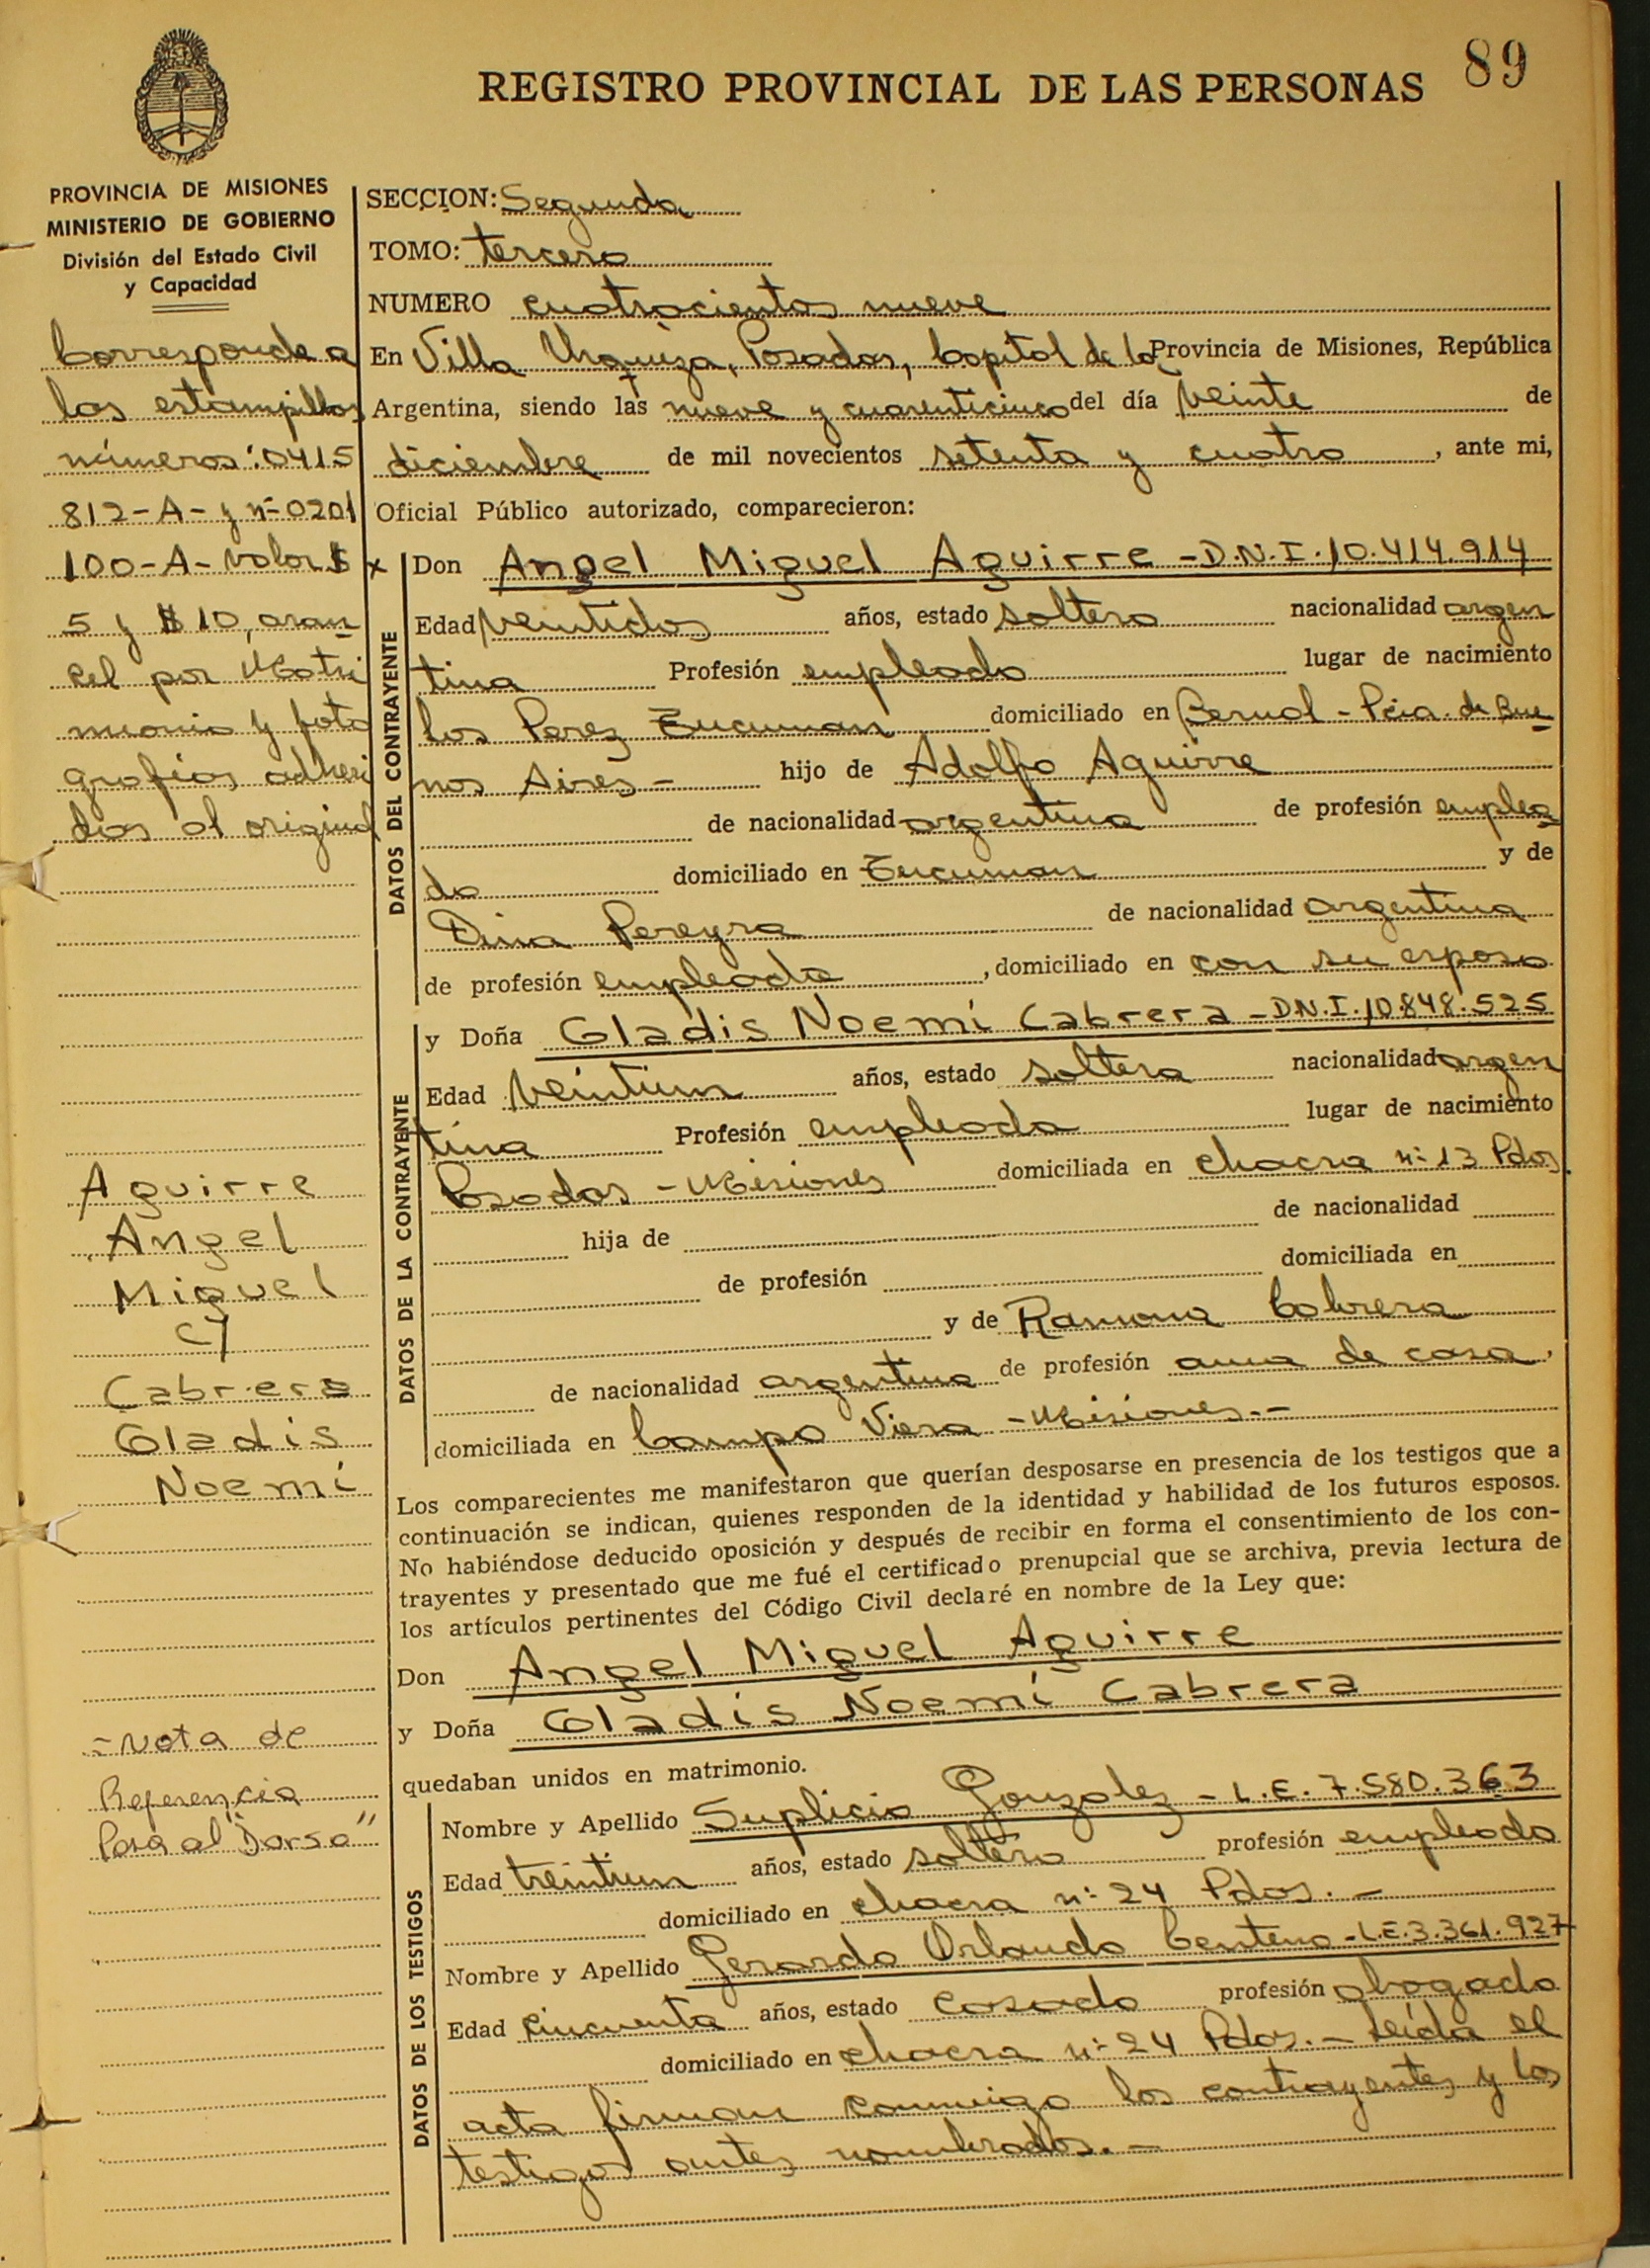 89
REGISTRO PROVINCIAL DE LAS PERSONAS
PROVINCIA DE MISIONES
MINISTERIO DE GOBIERNO
División del Estado Civil
y Capacidad
Corresponde a
las estampillas
números: 0415
812-A- y nº 0201
100-A- valor $
5 y $ 10, aran
cel por Matri
monio y foto
grafías adheri
das al original
Aguirre
Angel
Miguel
y
Cabrera
Gladis
Noemí
- Nota de
Referencia
Pasa al "Dorso"
SECCION: Segunda
TOMO: tercero
NUMERO cuatrocientos nueve
En Villa Urquiza, Posadas, Capital de la Provincia de Misiones, República
Argentina, siendo las nueve y cuarenticinco del día veinte de
diciembre de mil novecientos setenta y cuatro, ante mi,
Oficial Público autorizado, comparecieron:
DATOS DEL CONTRAYENTE
x Don Angel Miguel Aguirre - D.N.I. 10.414.914
Edad veintidos años, estado soltero nacionalidad argen
tina Profesión empleado lugar de nacimiento
los Perez Tucuman domiciliado en Bernal - Pcia. de Bue
nos Aires - hijo de Adolfo Aguirre
de nacionalidad argentina de profesión emplea
do domiciliado en Tucuman y de
Dina Pereyra de nacionalidad argentina
de profesión empleada, domiciliado en con su esposo
DATOS DE LA CONTRAYENTE
y Doña Gladis Noemí Cabrera - D.N.I. 10.848.525
Edad veintiun años, estado soltera nacionalidad argen
tina Profesión empleada lugar de nacimiento
Posadas - Misiones domiciliada en chacra nº 13 Pdas.
hija de de nacionalidad
de profesión domiciliada en
y de Ramona Cabrera
de nacionalidad argentina de profesión ama de casa.
domiciliada en Campo Viera - Misiones.-
Los comparecientes me manifestaron que querían desposarse en presencia de los testigos que a
continuación se indican, quienes responden de la identidad y habilidad de los futuros esposos.
No habiéndose deducido oposición y después de recibir en forma el consentimiento de los con-
trayentes y presentado que me fué el certificado prenupcial que se archiva, previa lectura de
los artículos pertinentes del Código Civil declaré en nombre de la Ley que:
Don Angel Miguel Aguirre
y Doña Gladis Noemí Cabrera
quedaban unidos en matrimonio.
DATOS DE LOS TESTIGOS
Nombre y Apellido Suplicio Gonzalez - L.E. 7.580.363
Edad treintiun años, estado soltero profesión empleado
domiciliado en chacra nº 24 Pdas. -
Nombre y Apellido Gerardo Orlando Centeno - L.E. 3.361.927
Edad cincuenta años, estado casado profesión abogado
domiciliado en chacra nº 24 Pdas. - Leída el
acta firman conmigo los contrayentes y los
testigos antes nombrados. -